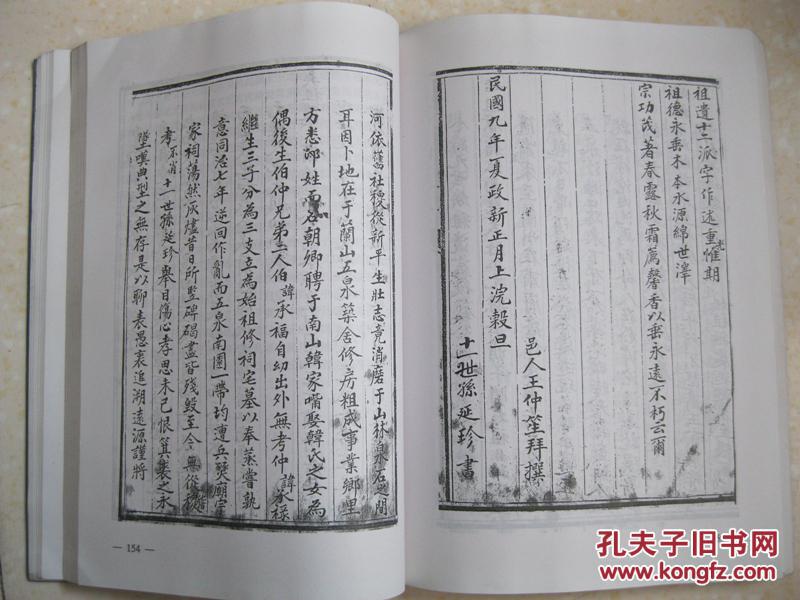 祖遺十二派字作述重惟期
光
祖德永垂木本水源綿世澤
宗功茂著春露秋霜薦馨香以垂永遠不朽云爾
民國九年夏政新正月上浣穀旦
邑人王仲笙拜撰
十一世孫延珍書
河依舊社稷從新平生壯志竟消磨于山林泉石之間
耳因卜地在于蘭山五泉築舍修房粗成事業鄉里
方悉邵姓而名朝卿聘于南山韓家嘴娶韓氏之女為
偶後生伯仲兄弟二人伯諱承福自幼出外無考仲諱承祿
繼生三子分為三支立為始祖修祠宅墓以奉蒸嘗孰
意同治七年逆回作亂而五泉南園一帶均遭兵燹廟宇
家祠蕩然灰燼昔日所豎碑碣盡皆殘毀至今無從稽
考不肖十一世孫延珍舉目傷心孝思未已恨箕裘之永
墜嘆典型之無存是以聊表愚衷追溯遠源謹將
— 154 —
孔夫子旧书网
www.kongfz.com